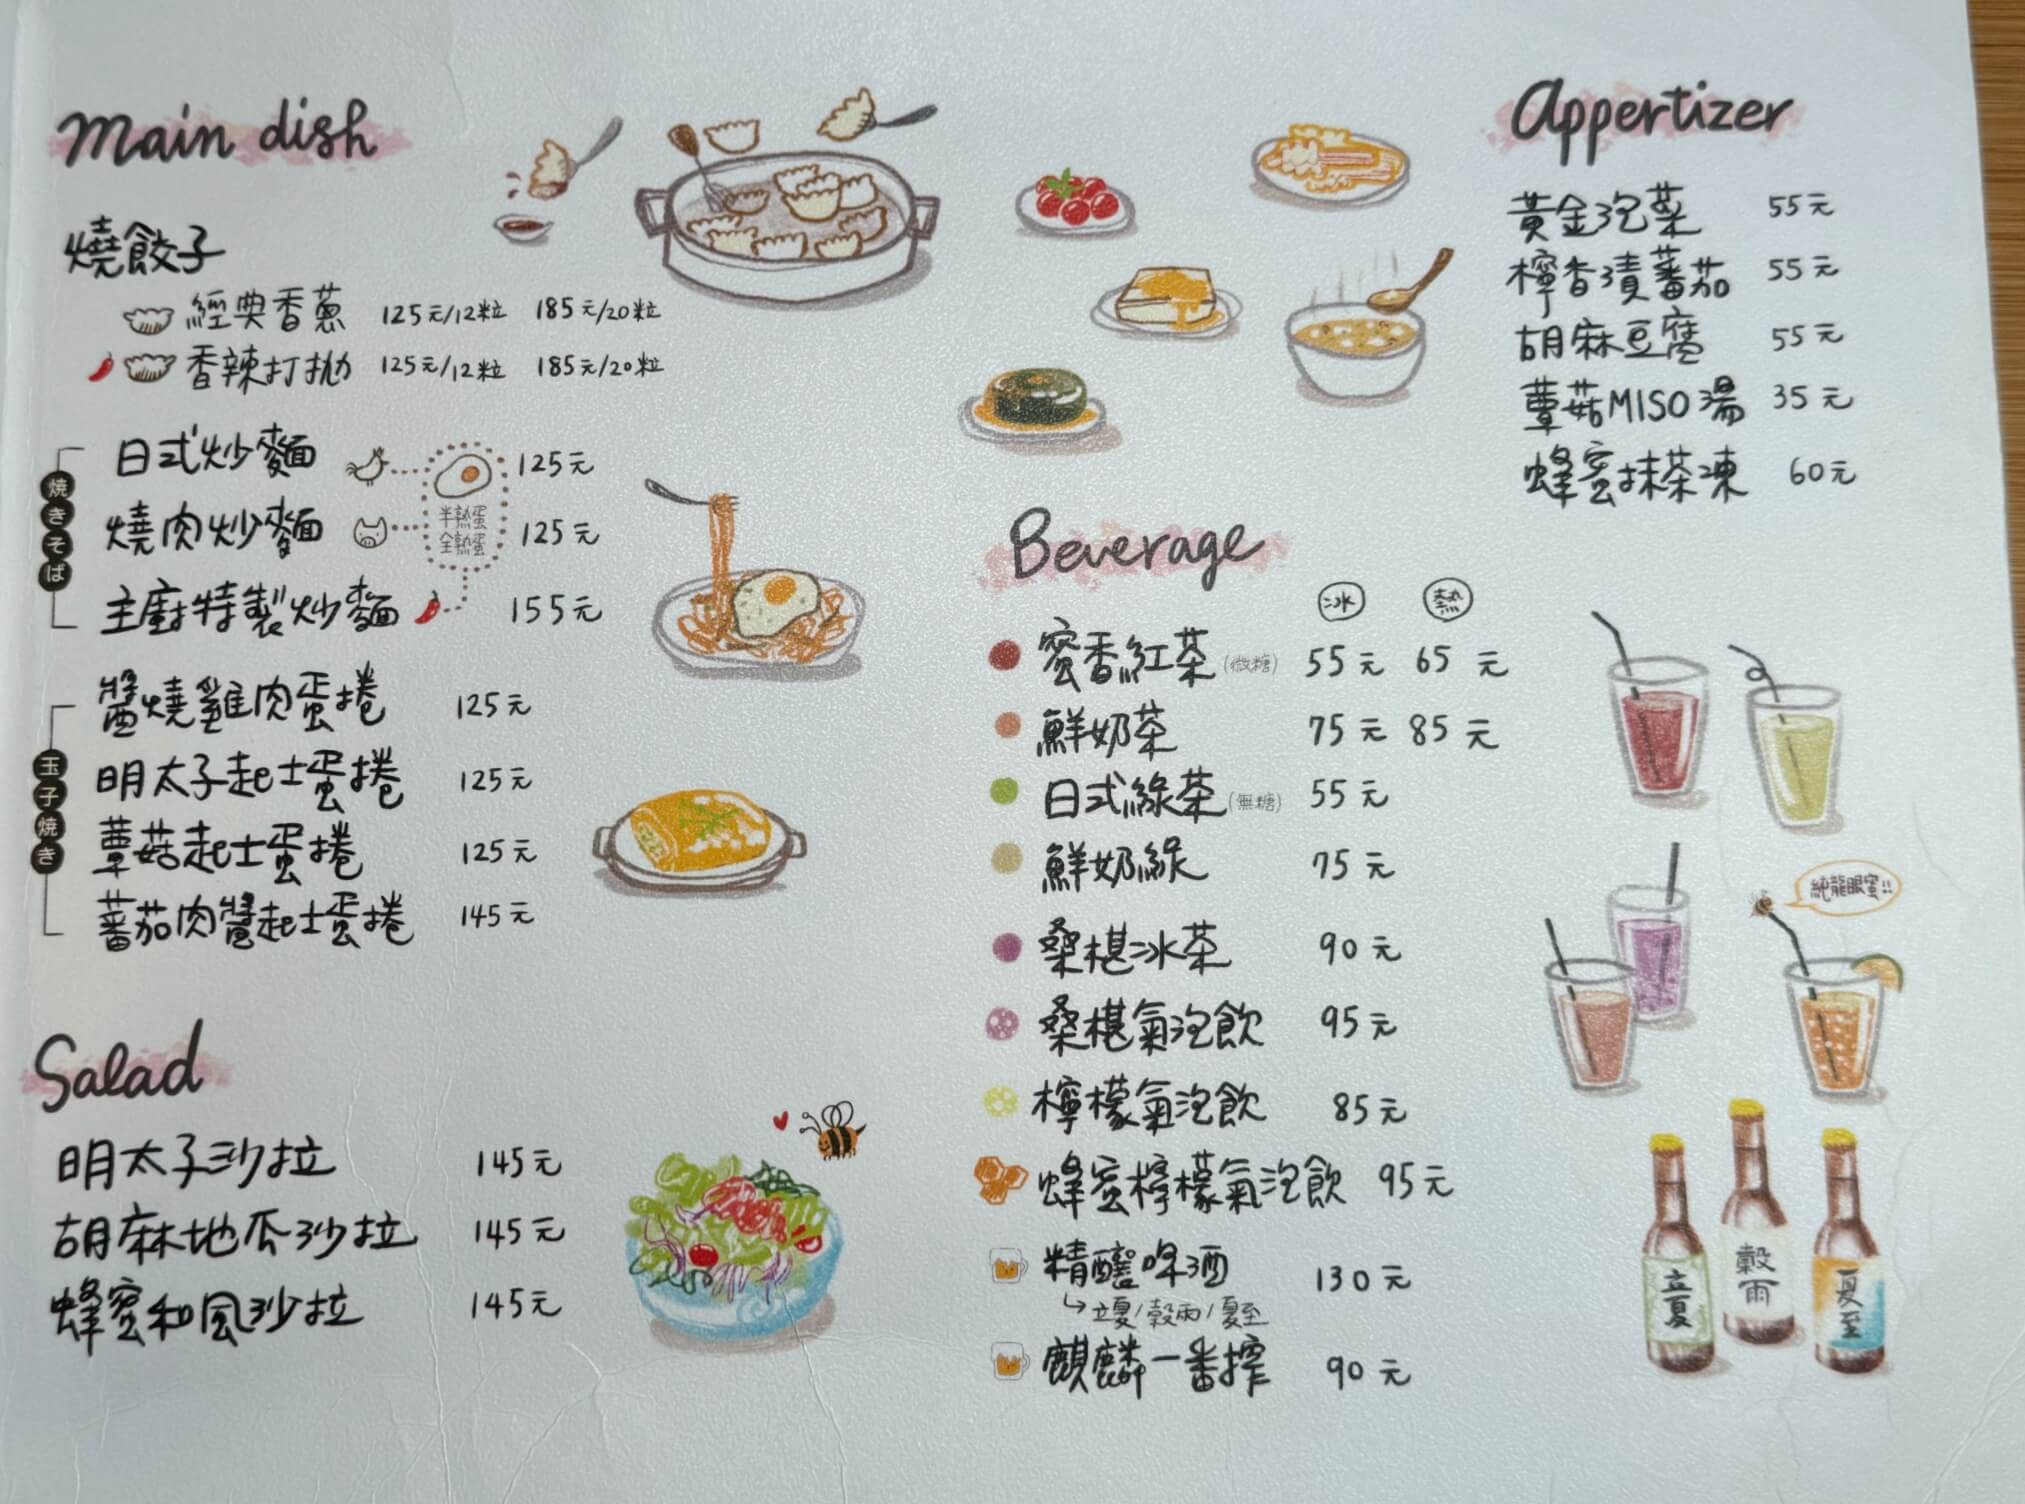 Main dish
燒餃子
經典香蔥 125元/12粒 185元/20粒
香辣打拋 125元/12粒 185元/20粒
焼きそば
日式炒麵 125元
燒肉炒麵 125元
半熟蛋
全熟蛋
主廚特製炒麵 155元
玉子焼き
醬燒雞肉蛋捲 125元
明太子起士蛋捲 125元
蕈菇起士蛋捲 125元
蕃茄肉醬起士蛋捲 145元
Salad
明太子沙拉 145元
胡麻地瓜沙拉 145元
蜂蜜和風沙拉 145元
Appertizer
黃金泡菜 55元
檸香漬蕃茄 55元
胡麻豆腐 55元
蕈菇MISO湯 35元
蜂蜜抹茶凍 60元
Beverage
冰 熱
蜜香紅茶(微糖) 55元 65元
鮮奶茶 75元 85元
日式綠茶(無糖) 55元
鮮奶綠 75元
桑椹冰茶 90元
桑椹氣泡飲 95元
檸檬氣泡飲 85元
蜂蜜檸檬氣泡飲 95元
精釀啤酒 130元
↳立夏/穀雨/夏至
麒麟一番搾 90元
純龍眼蜜!!
立夏
穀雨
夏至